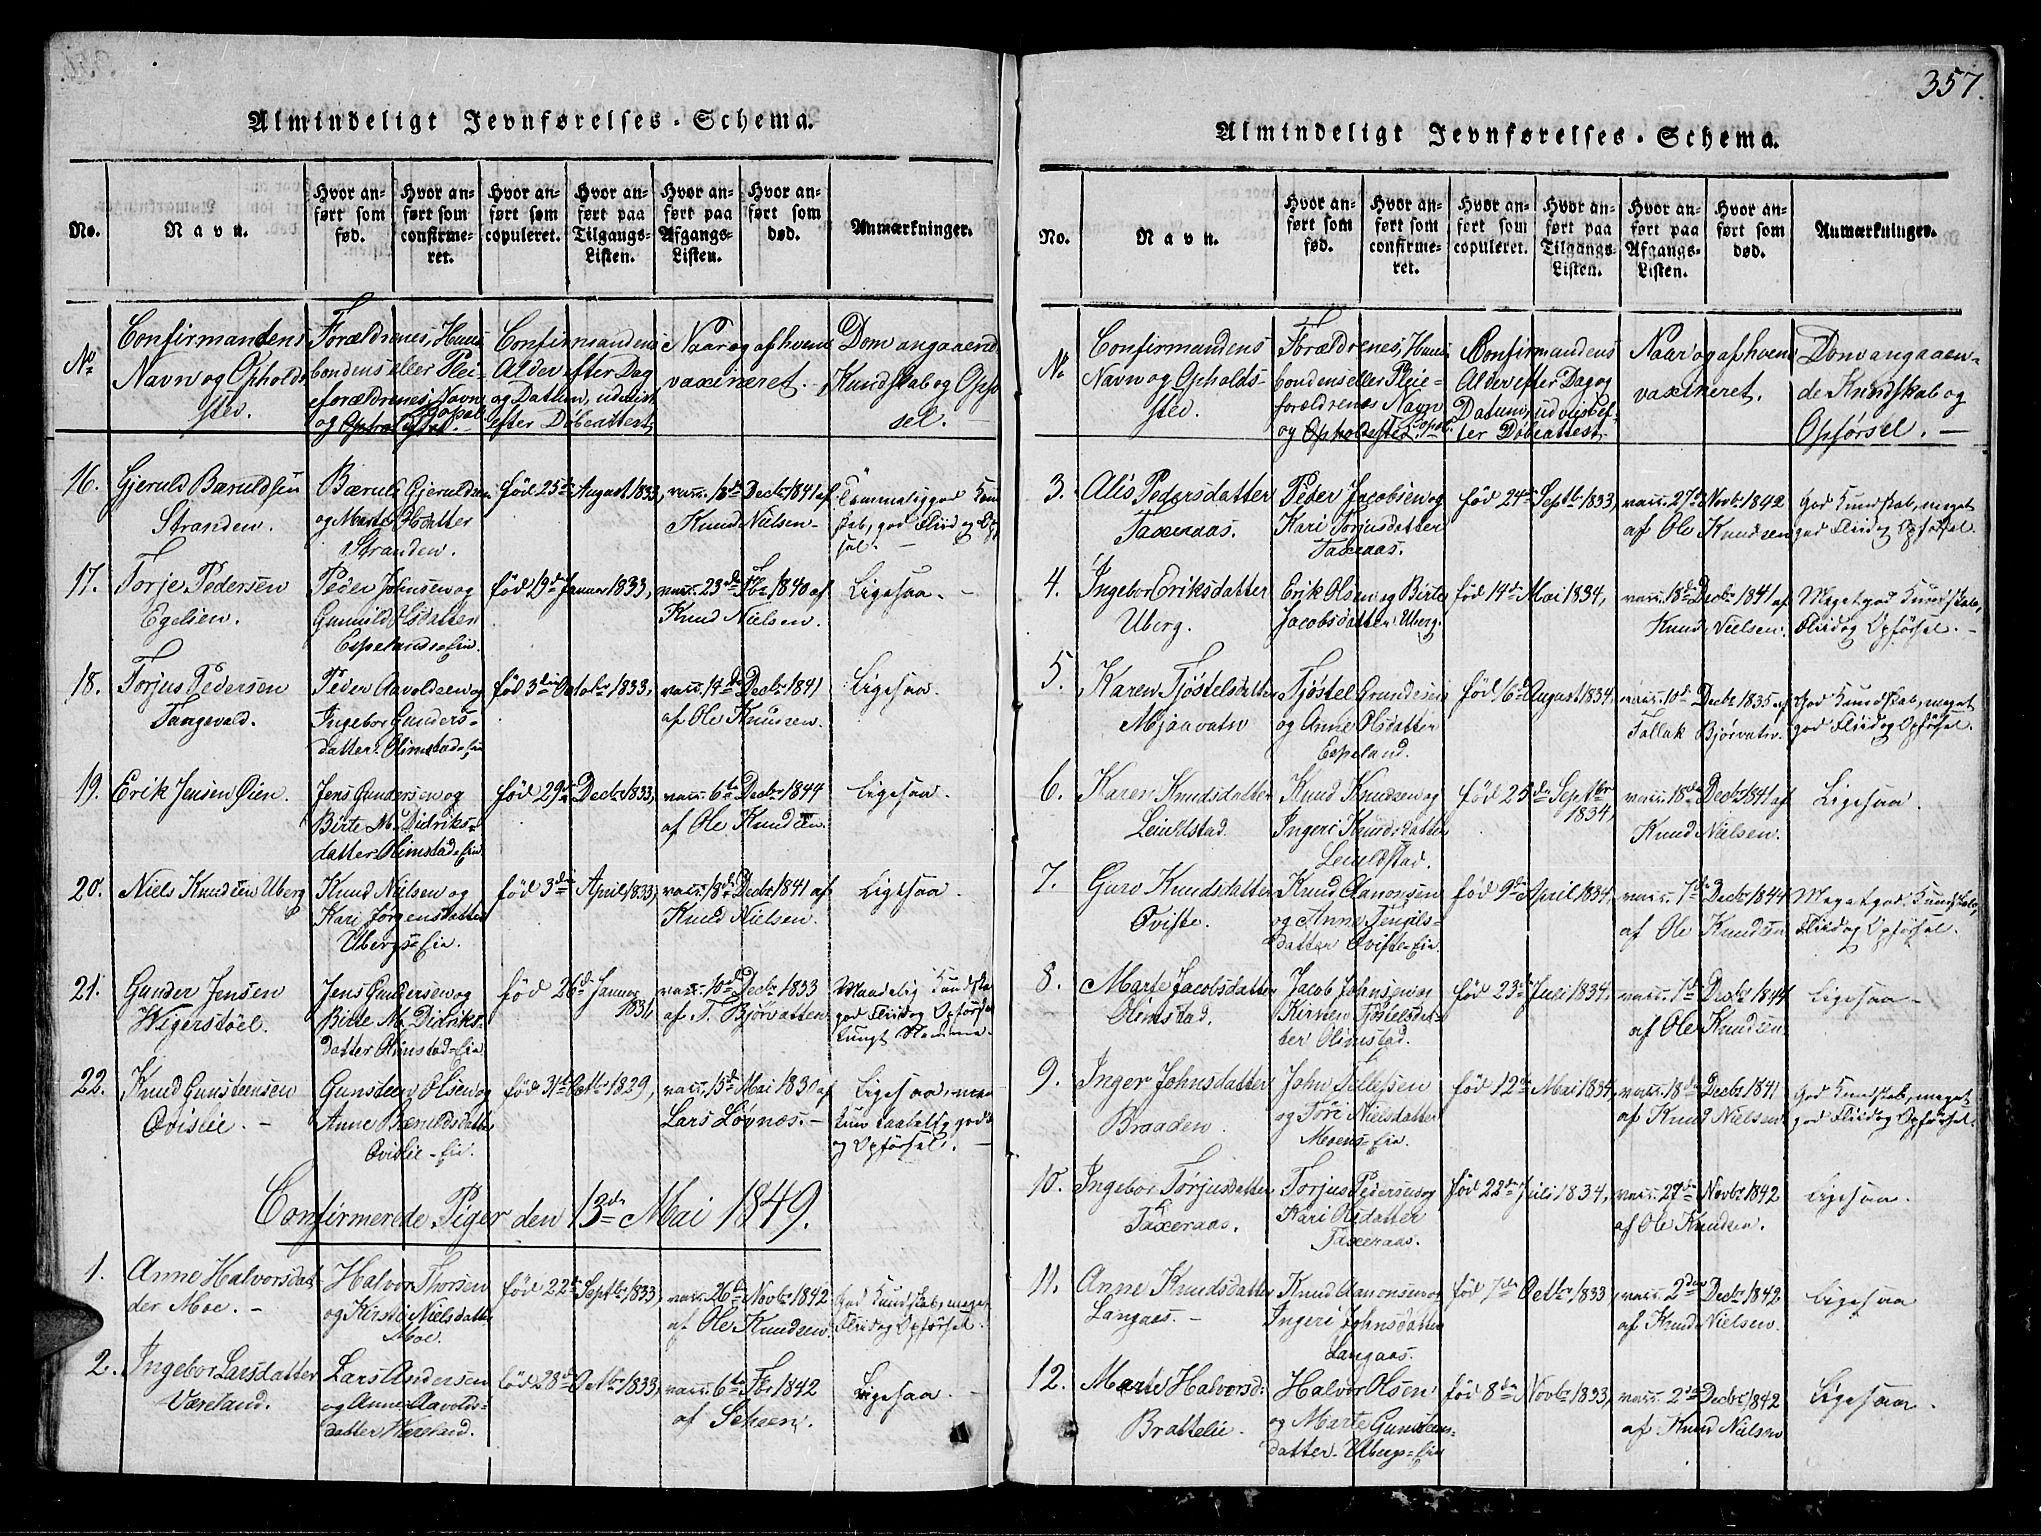 357.
Almindeligt Jevnførelses-Schema.
No.
Navn.
Hvor anført som fød.
Hvor anført som confirmeret.
Hvor anført som copuleret.
Hvor anført paa Tilgangs-Listen.
Hvor anført paa Afgangs-Listen.
Hvor anført som død.
Anmærkninger.
No
Confirmandens
Navn og Opholds
sted.
Forældrenes, Huus
bondens eller Plei-
eforældrenes Navn
og Bopæl.
Confirmandens
Alder efter Dag
og Datum, udviist
efter Døbeattest,
Naar og af hvem
vaxineret. -
Dom angaaend
Kundskab og Opfø
sel. -
16. Gjeruld Bæruldsen
Stranden.
Bæruld Gjeruldsen
og Marte Olsdatter
Stranden.
fød 25de August 1833,
vacc. 18de Decbr 1841 af
Knud Nielsen -
Temmelig god Kun
skab, god Fliid og Op
sel. -
17. Torje Pedersen
Egelien.
Peder Johnsen og
Gunnild Olsdatter
Espelands-Eie.
fød 19de Januar 1833,
vacc. 23de Fbr 1840 af
Knud Nielsen.
Ligesaa. -
18. Torjus Pedersen
Tangevald.
Peder Aavoldsen og
Ingebor Gunders-
datter Olimstad-Eie
fød 3die Octobr 1833,
vacc. 14de Decbr 1841
af Ole Knudsen.
Ligesaa.
19. Erik Jensen Øien.
Jens Gundersen og
Birte M. Didriks-
datter Olimstad-Eie
fød 29de Decbr 1833,
vacc. 6te Decbr 1844
af Ole Knudsen.
Ligesaa.
20. Niels Knudsen Uberg
Knud Nielsen og
Kari Jørgensdatter
Ubergs-Eie.
fød 3die April 1833,
vacc. 18de Decbr 1841 af
Knud Nielsen.
Ligesaa.
21. Gunder Jensen
Wigerstøel.
Jens Gundersen og
Birte M. Didriks-
datter Olimstad-Eie
fød 26de Januar
1831,
vacc. 10de Decbr 1833
af T. Bjørvatten
Maadelig Kundska
god Fliid og Opførsel
tungt Nemme
22. Knud Gunsteensen
Ovislie. -
Gunsteen Olsen og
Anne Bæruldsdatte
Ovislie-Eie.
fød 31te Octbr 1829,
vacc. 15de Mai 1830 af
Lars Løvnæs. -
Ligesaa, men
kun taalelig god
og Opførsel. -
Confirmerede Piger den 13de Mai 1849.
1. Anne Halvorsdat
der Moe. -
Halvor Thorsen
og Kirsti Nielsdatte
Moe.
fød 22de Septbr 1833,
vacc. 26de Novbr 1842
af Ole Knudsen.
God Kundskab, meget
Fliid og Opførsel.
2. Ingebor Larsdatter
Væreland.
Lars Andersen
og Anne Aavolds-
datter Wæreland.
fød 28de Octbr 1833,
vacc. 6te Fbr 1842
af Scheen.
Ligesaa -
Almindeligt Jevnførelses-Schema.
No.
Navn.
Hvor anført som fød.
Hvor anført som confirmeret.
Hvor anført som copuleret.
Hvor anført paa Tilgangs-Listen.
Hvor anført paa Afgangs-Listen.
Hvor anført som død.
Anmærkninger.
No
Confirmandens
Navn og Opholds-
sted.
Forældrenes, Huus
bondens eller Pleie-
forældrenes Navn
og Opholdssted. Bopæl.
Confirmandens
Alder efter Dag og
Datum, udviist ef-
ter Døbeattest.
Naar og af hvem
vaxineret.
Dom angaaen-
de Kundskab og
Opførsel. -
3. Alis Pedersdatter
Taxeraas.
Peder Jacobsen og
Kari Torjusdatter
Taxeraas.
fød 24de Septbr 1833,
vacc. 27de Novbr 1842
af Ole Knudsen
God Kundskab, meget
god Fliid og Opførsel.
4. Ingebor Eriksdatter
Uberg.
Erik Olsen og Birte
Jacobsdatter Uberg.
fød 14de Mai 1834,
vacc. 18de Decbr 1841 af
Knud Nielsen.
Meget god Kundskab,
Fliid og Opførsel. -
5. Karen Tjøstelsdatter
Mjaavatn
Tjøstel Gundersen
og Anne Olsdatter
Espeland.
fød 16de August 1834,
vacc. 10de Decbr 1835 af
Tallak Bjørvatn.
God Kundskab, meget
god Fliid og Opførsel.
6. Karen Knudsdatter
Leiulstad.
Knud Knudsen og
Ingeri Knudsdatter
Leiulstad.
fød 25de Septbr
1834,
vacc. 18de Decbr 1841 af
Knud Nielsen.
Ligesaa.
7. Guro Knudsdatter
Oviste.
Knud Aanonsen
og Anne Tengils-
datter Oviste-Eie
fød 9de April 1834,
vacc. 1ste Decbr 1844
af Ole Knudsen
Meget god Kundskab,
Fliid og Opførsel.
8. Marte Jacobsdatter
Olimstad.
Jacob Johnsen og
Kirsten Tjøstelsdat-
ter Olimstad.
fød 23de Juli 1834,
vacc. 1ste Decbr 1844
af Ole Knudsen
Ligesaa -
9. Inger Johnsdatter
Braaden.
John Tellefsen
og Tøri Nielsdatter
Moens-Eie.
fød 12te Mai 1834,
vacc. 18de Decbr 1841
af Knud Nielsen
God Kundskab, meget
god Fliid og Opførsel.
10. Ingebor Torjusdatter
Taxeraas.
Torjus Pedersen og
Kari Olsdatter
Taxeraas.
fød 22de Juli 1834,
vacc. 27de Novbr 1842
af Ole Knudsen.
Ligesaa.
11. Anne Knudsdatter
Langaas. -
Knud Aanonsen og
Ingeri Johnsdatter
Langaas.
fød 7de Octbr 1833,
vacc. 2den Decbr 1842
af Knud Nielsen.
Ligesaa
12. Marte Halvorsd:
Brattelie.
Halvor Olsen
og Marte Gunsteens-
datter Ubergs-Eie
fød 8de Novbr 1833,
vacc. 2den Decbr 1842
af Knud Nielsen
Ligesaa.